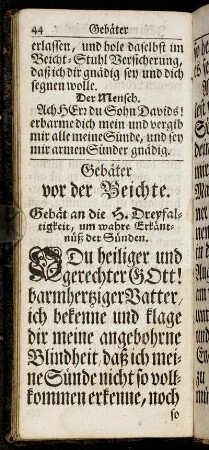 44 Gebäter
erlassen, und hole daselbst im
Beicht-Stuhl Versicherung,
daß ich dir gnädig sey und dich
segnen wolle.
Der Mensch.
Ach HErr du Sohn Davids!
erbarme dich mein und vergib
mir alle meine Sünde, und sey
mir armen Sünder gnädig.
Gebäter
vor der Beichte.
Gebät an die H. Dreyfal-
tigkeit, um wahre Erkänt-
nüß der Sünden.
Du heiliger und
gerechter GOtt!
barmhertziger Vatter,
ich bekenne und klage
dir meine angebohrne
Blindheit, daß ich mei-
ne Sünde nicht so voll-
kommen erkenne, noch
so